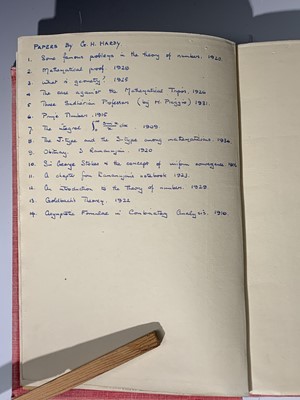 PAPERS BY G. H. HARDY
1. Some famous problems in the theory of numbers. 1920
2. Mathematical proof. 1928
3. What is geometry? 1925
4. The case against the Mathematical Tripos. 1926
5. Three Sadleirian Professors (by H. Piaggio) 1931.
6. Prime Numbers. 1915
7. The integral 1909.
8. The J-type and the S-type among mathematicians. 1934.
9. Obituary S Ramanujan. 1920
10. Sir George Stokes & the concept of uniform convergence.
11. A chapter from Ramanujan's notebook 1923.
12. An introduction to the theory of numbers. 1929
13. Goldbach's Theorem. 1922
14. Asymptotic Formulae in Combinatory Analysis. 1918.